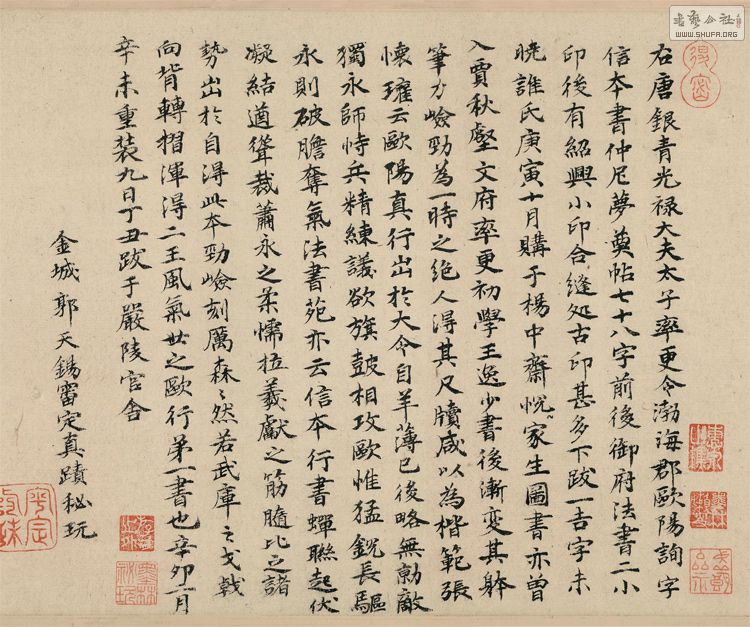 右唐銀青光禄大夫太子率更令渤海郡歐陽詢字
信本書仲尼夢奠帖七十八字前後御府法書二小
印後有紹興小印合縫処古印甚多下跋一吉字未
曉誰氏庚寅十月購于楊中齋悦家生圖書亦曽
入賈秋壑文府率更初學王逸少書後漸變其躰
筆力嶮勁為一時之绝人得其尺牘咸以為楷範張
懷瓘云歐陽真行出於大令自羊薄已後略無勍敵
獨永師恃兵精練議欲旗鼓相攻歐惟猛銳長驅
永則破膽奪氣法書苑亦云信本行書蟬聯起伏
凝結遒聳裁蕭永之柔懦拉羲獻之筋髓比之諸
勢出於自得此本勁嶮刻厲森〻然若武庫之戈戟
向背轉摺渾得二王風氣世之歐行第一書也辛卯二月
辛未重装九日丁丑跋于嚴陵官舎
金城郭天錫審定真蹟秘玩
書藝公社
WWW.SHUFA.ORG